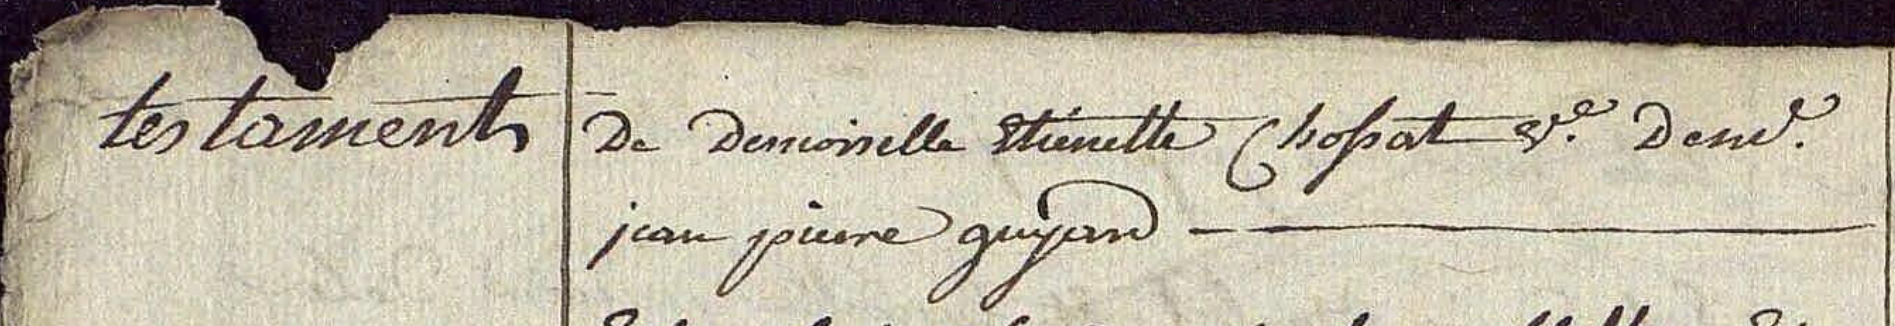 testament De Demoiselle Etienette Chossat v.e De m.r
jean pierre guyard